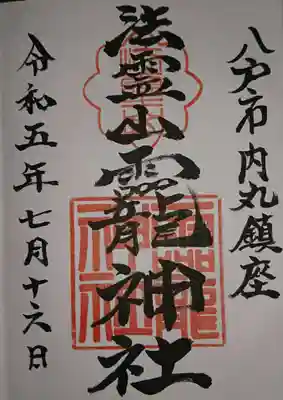 八戸市内丸鎮座
法霊山龗神社
令和五年七月十六日
龗神社